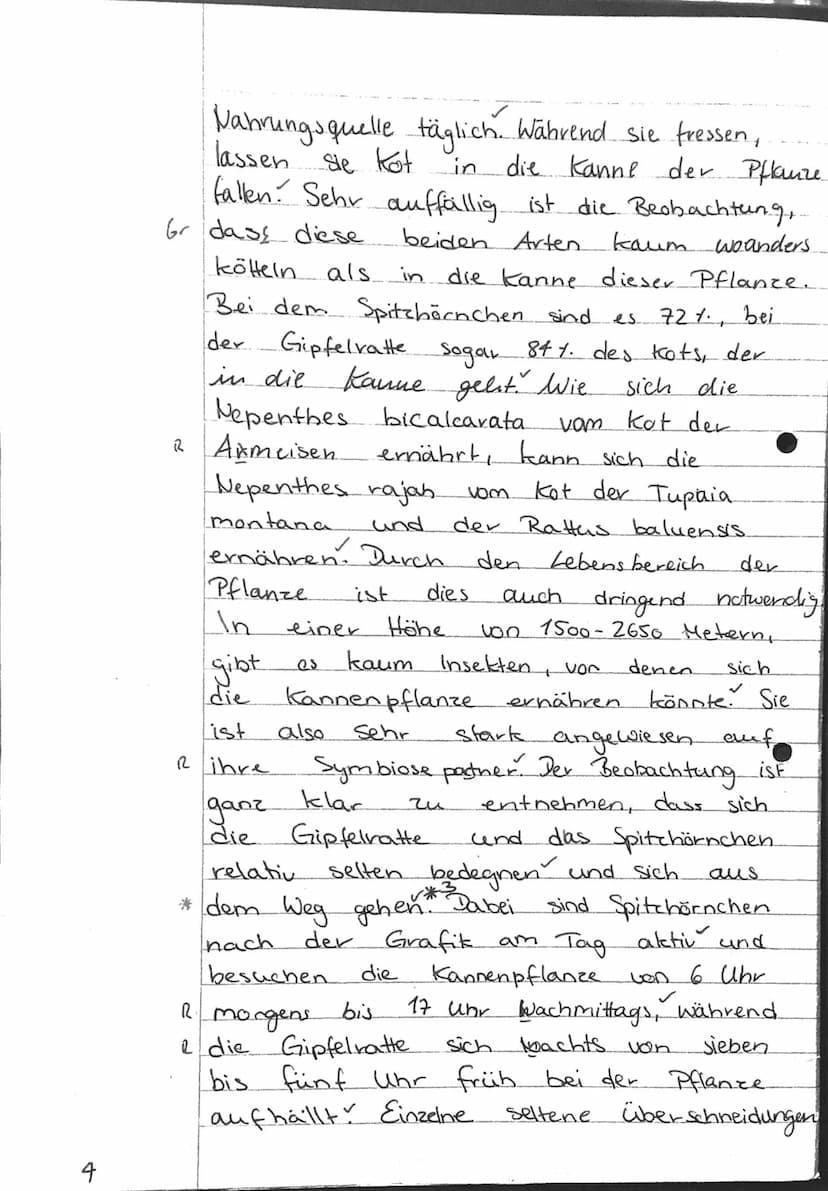 Nahrungsquelle täglich. Während sie fressen,
lassen sie Kot in die Kanne der Pflanze
fallen. Sehr auffällig ist die Beobachtung,
Gr dass diese beiden Arten kaum woanders
kötteln als in die Kanne dieser Pflanze.
Bei dem Spitzhörnchen sind es 72 %, bei
der Gipfelratte sogar 84 % des Kots, der
in die Kanne geht. Wie sich die
Nepenthes bicalcarata vom Kot der
R Ameisen ernährt, kann sich die
Nepenthes rajah vom Kot der Tupaia
montana und der Rattus baluensis
ernähren. Durch den Lebensbereich der
Pflanze ist dies auch dringend notwendig.
In einer Höhe von 1500-2650 Metern,
gibt es kaum Insekten, von denen sich
die Kannenpflanze ernähren könnte. Sie
ist also sehr stark angewiesen auf
R ihre Symbiosepartner. Der Beobachtung ist
ganz klar zu entnehmen, dass sich
die Gipfelratte und das Spitzhörnchen
relativ selten bedegnen und sich aus
* dem Weg gehen. *3 Dabei sind Spitzhörnchen
nach der Grafik am Tag aktiv und
besuchen die Kannenpflanze von 6 Uhr
R morgens bis 17 Uhr Nachmittags, während
R die Gipfelratte sich Nachts von sieben
bis fünf Uhr früh bei der Pflanze
aufhällt. Einzelne seltene Überschneidungen
4